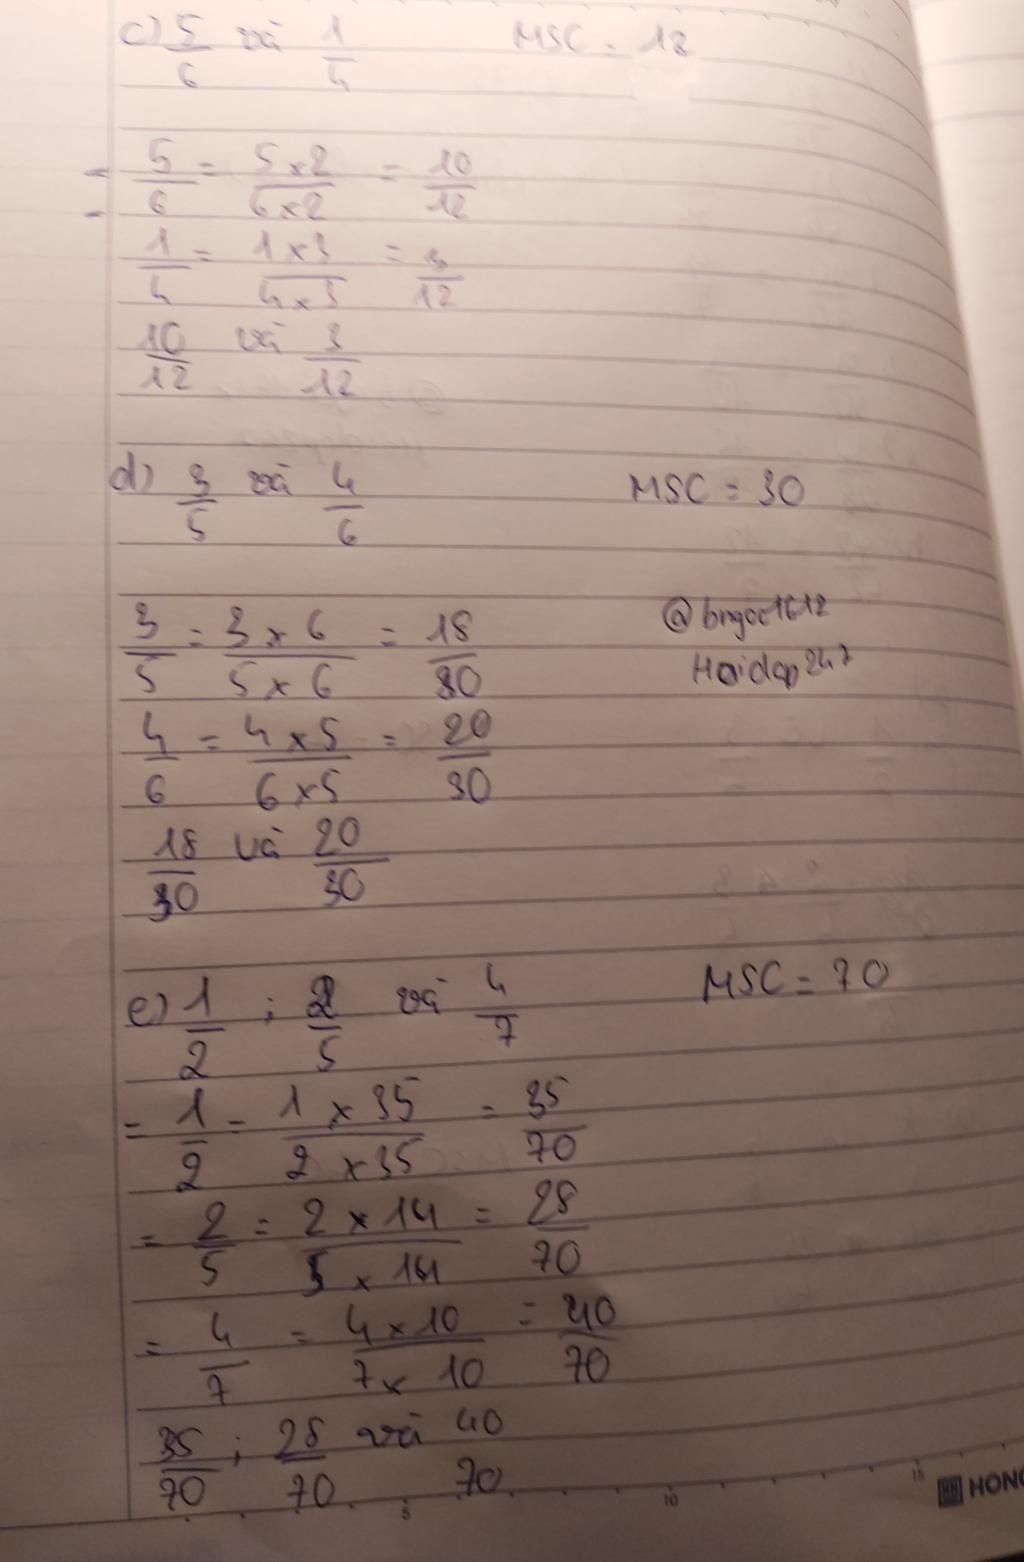 c) 5/6 và 1/4 MSC = 12
= 5/6 = 5×2/6×2 = 10/12
= 1/4 = 1×3/4×3 = 3/12
10/12 và 3/12
d) 3/5 và 4/6 MSC = 30
3/5 = 3×6/5×6 = 18/30
@bngoc1612
Hoidap247
4/6 = 4×5/6×5 = 20/30
18/30 và 20/30
e) 1/2 ; 2/5 và 4/7 MSC = 70
= 1/2 = 1×35/2×35 = 35/70
= 2/5 = 2×14/5×14 = 28/70
= 4/7 = 4×10/7×10 = 40/70
35/70 ; 28/70 và 40 70
5 10 15